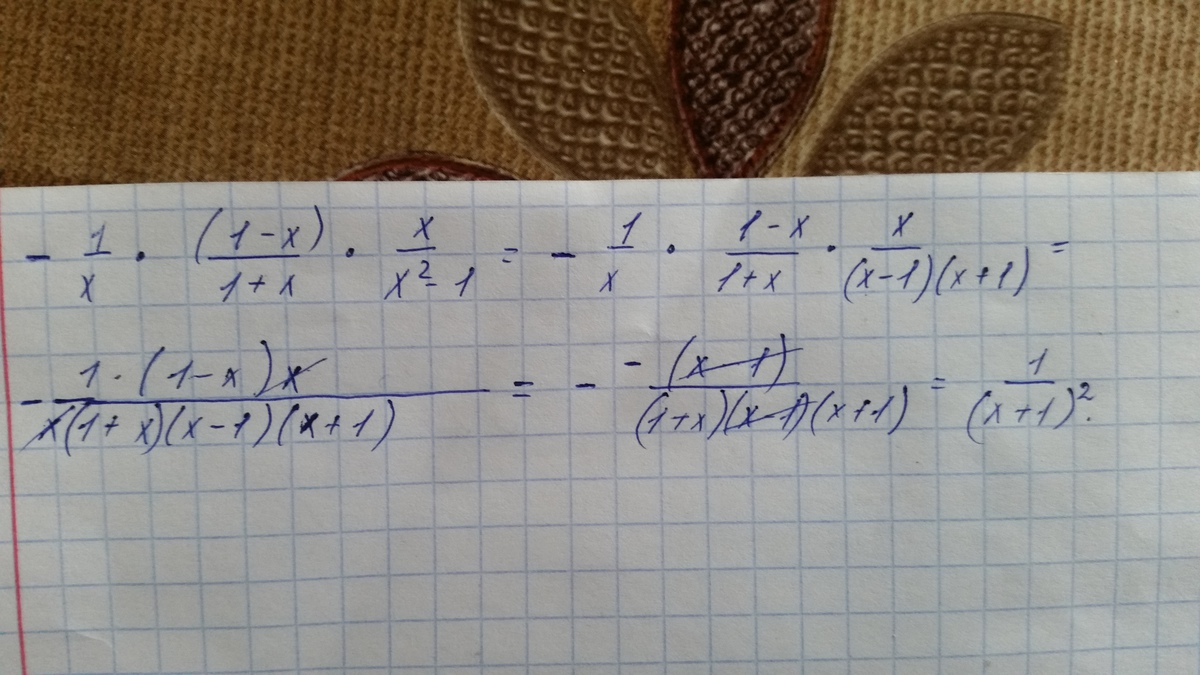 - 1/x · (1-x)/(1+x) · x/(x²-1) = - 1/x · (1-x)/(1+x) · x/((x-1)(x+1)) =
- (1·(1-x)x)/(x(1+x)(x-1)(x+1)) = - (-(x-1))/((1+x)(x-1)(x+1)) = 1/(x+1)².